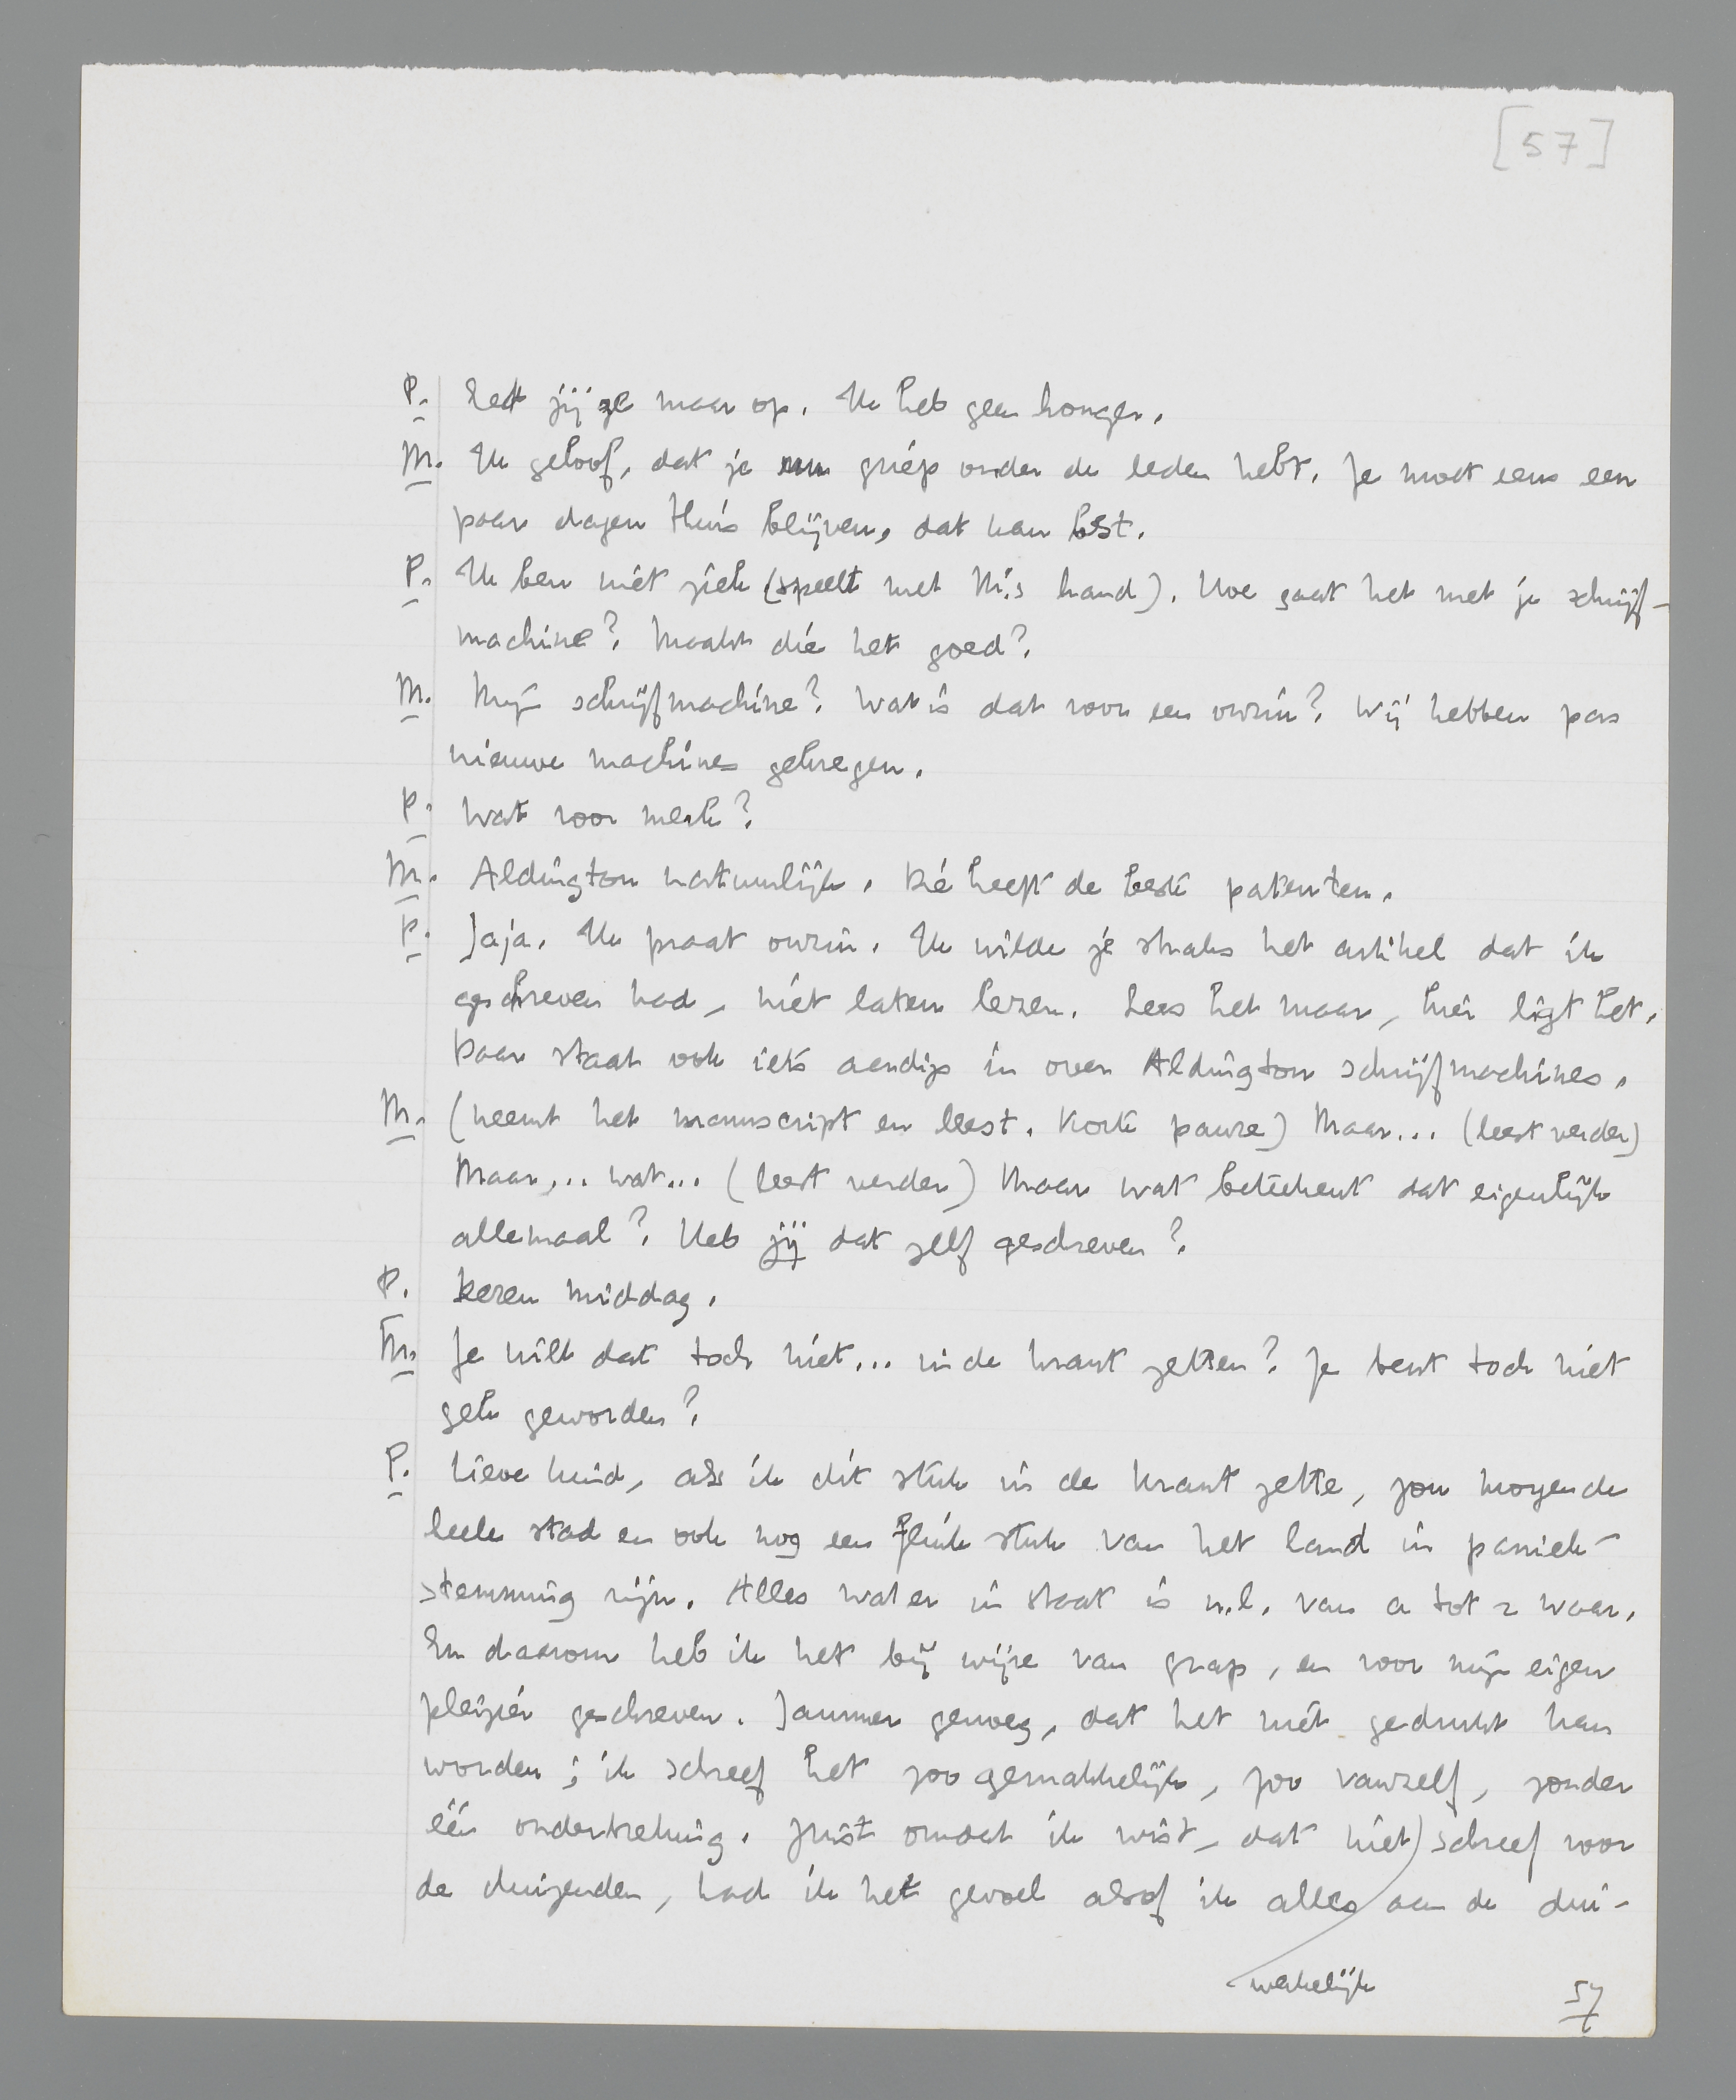 [57]
P. Eet jij ze maar op. Ik heb geen honger.
M. Ik geloof, dat je griep onder de leden hebt. Je moet eens een
paar dagen thuis blijven, dat kan best.
P. Ik ben niet ziek (speelt met M.'s hand). Hoe gaat het met je schrijf-
machine? Maakt die het goed?
M. Mijn schrijfmachine? Wat is dat voor een onzin? Wij hebben pas
nieuwe machines gekregen.
P. Wat voor merk?
M. Aldington natuurlijk. Die heeft de beste patenten.
P. Jaja. Ik praat onzin. Ik wilde je straks het artikel dat ik
geschreven had, niet laten lezen. Lees het maar, hier ligt het.
Daar staat ook iets aardigs in over Aldington schrijfmachines.
M. (neemt het manuscript en leest. Korte pauze) Maar... (leest verder)
Maar... wat... (leest verder) Maar wat beteekent dat eigenlijk
allemaal? Heb jij dat zelf geschreven?
P. Dezen middag.
M. Je wilt dat toch niet... in de krant zetten? Je bent toch niet
gek geworden?
P. Lieve kind, als ik dit stuk in de krant zette, zou morgen de
heele stad en ook nog een flink stuk van het land in paniek-
stemming zijn. Alles wat er in staat is n.l. van a tot z waar.
En daarom heb ik het bij wijze van grap, en voor mijn eigen
pleizier geschreven. Jammer genoeg, dat het niet gedrukt kan
worden; ik schreef het zoo gemakkelijk, zoo vanzelf, zonder
één onderbreking. Juist omdat ik wist, dat niet) schreef voor
de duizenden, had ik het gevoel alsof ik alles aan de dui-
werkelijk
57